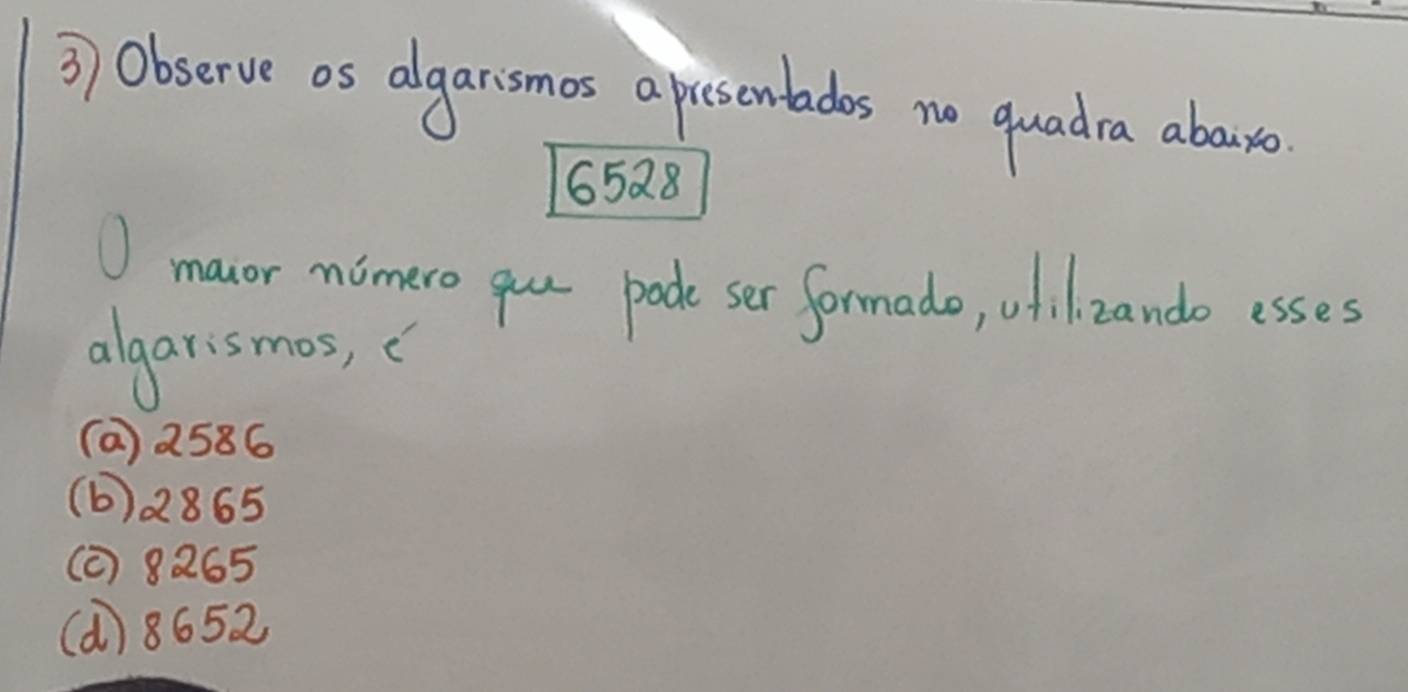 3) Observe os algarismos apresentados no quadra abaixo.
6528
O maior número que pode ser formado, utilizando esses
algarismos, é
(a) 2586
(b) 2865
(c) 8265
(d) 8652